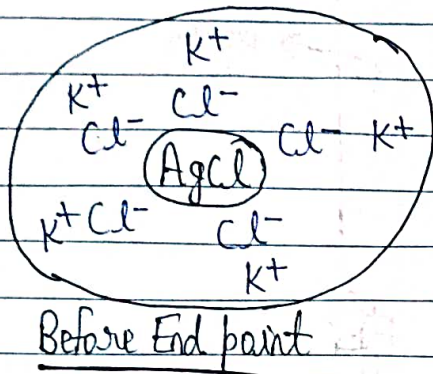 K⁺
K⁺ Cl⁻
Cl⁻ Cl⁻ K⁺
AgCl
K⁺ Cl⁻ Cl⁻
K⁺
Before End point